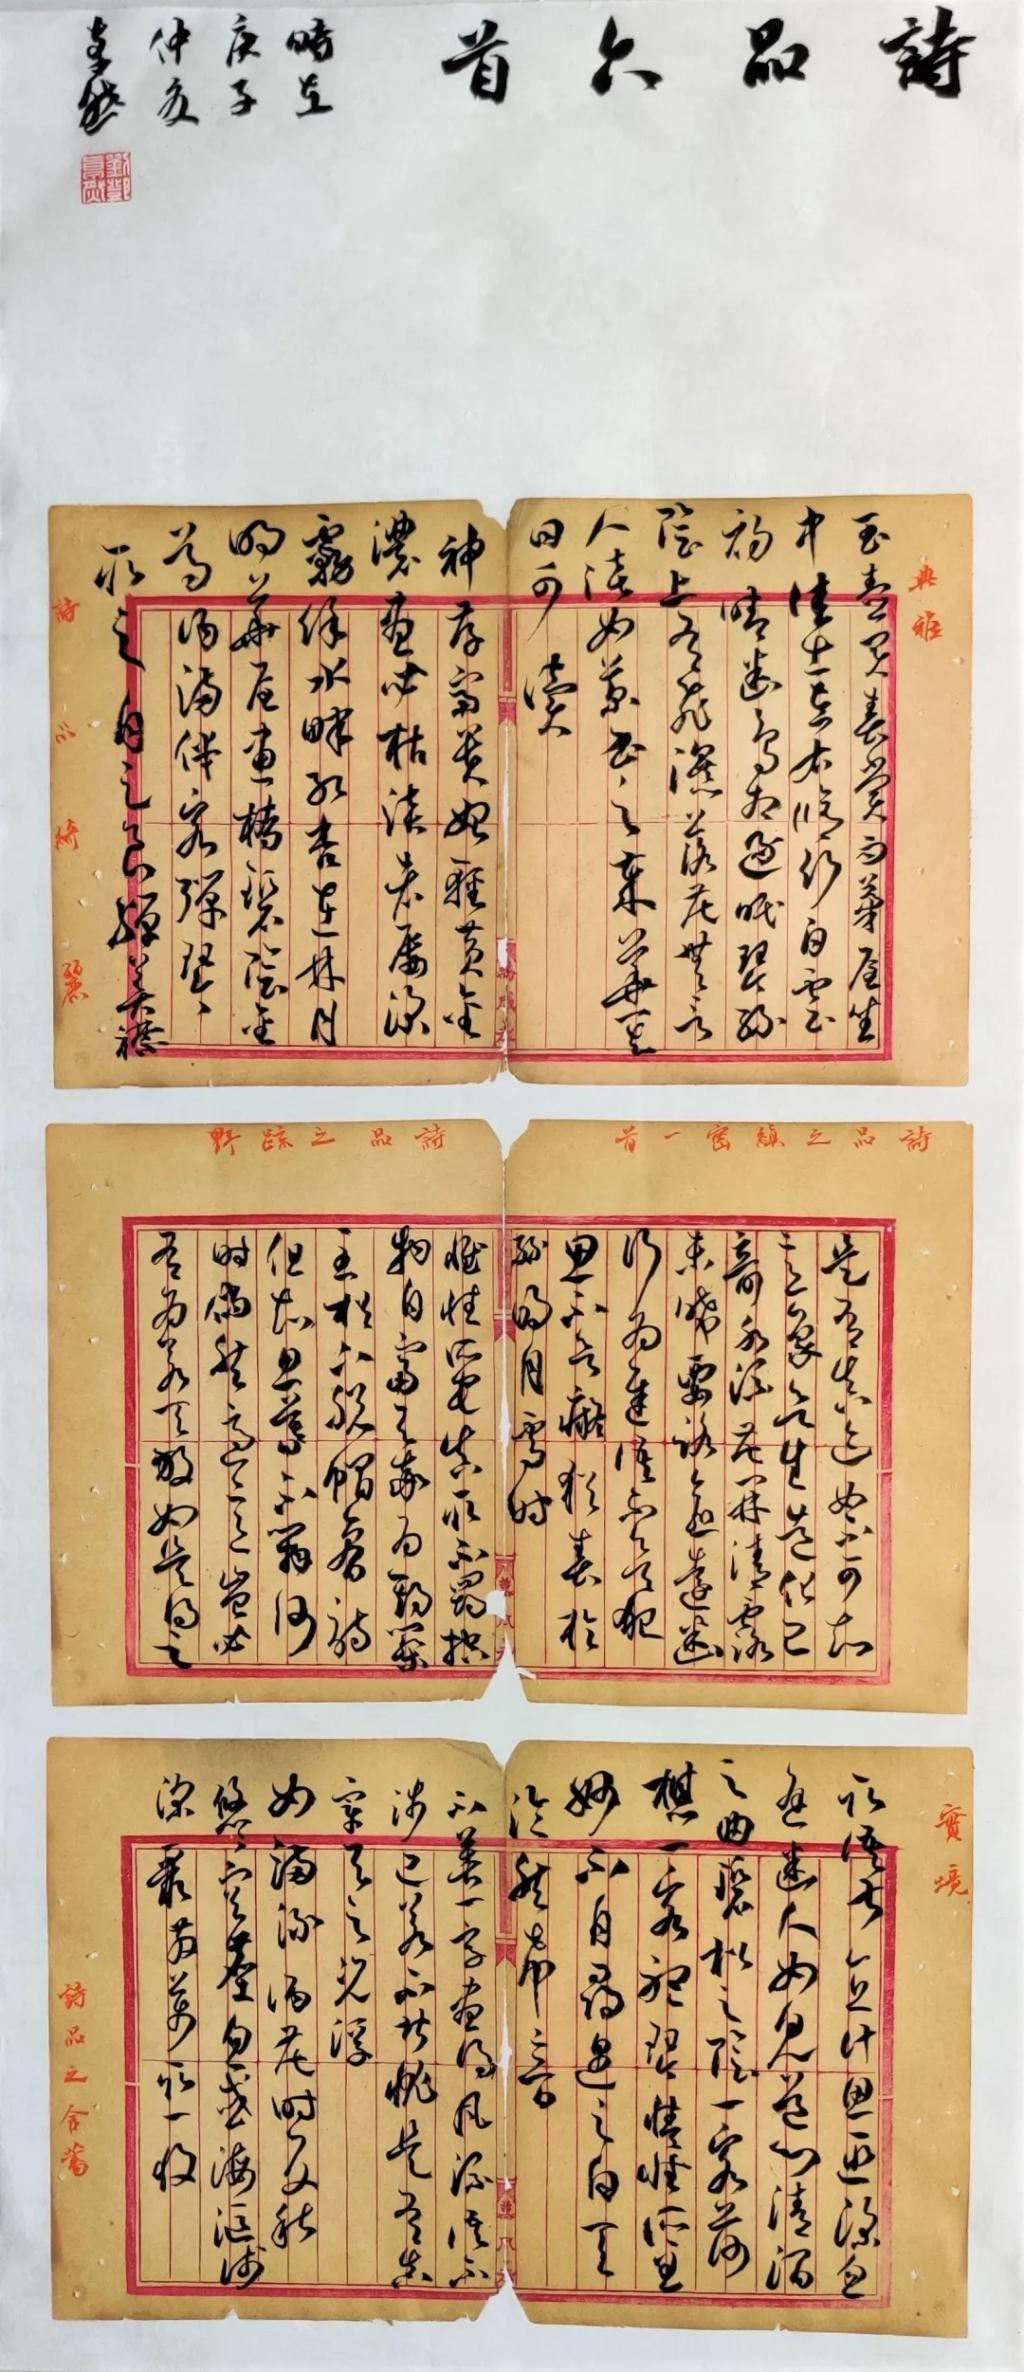 詩品六首
時在
庚子
仲夏
典雅
玉壺買春賞雨茅屋坐
中佳士左右脩竹白雲
初晴幽鳥相逐眠琴綠
陰上有飛瀑落花無言
人淡如菊書之歲華其
曰可讀
神存富貴始輕黃金
濃盡必枯淡者屢深
霧餘水畔紅杏在林月
明華屋畫橋碧陰金
尊酒滿伴客彈琴
取之自足良殫美襟
詩品綺麗
詩品之縝密一首
是有真迹如不可知
意象欲生造化已
奇水流花開清露
未晞要路愈遠幽
行為遲語不欲犯
思不欲癡猶春於
綠明月雪時
詩品之疏野
惟性所宅真取不羈控
物自富與率為期築
室松下脫帽看詩
但知旦暮不辨何
時倘然適意豈必
有為若其天放如是得之
實境
取語甚直計思匪深忽
逢幽人如見道心清澗
之曲碧松之陰一客荷
樵一客聽琴情性所至
妙不自尋遇之自天
泠然希音
不著一字盡得風流語不
涉己若不堪憂是有真
宰與之沉浮
如滿綠酒花時反秋
悠悠空塵忽忽海漚淺
深聚散萬取一收
詩品之含蓄